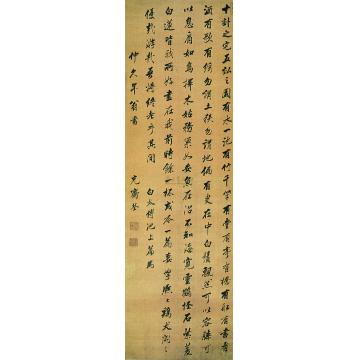 十畝之宅五畝之園有水一池有竹千竿有堂有亭有橋有船有書有
酒有歌有絃勿謂土狹勿謂地偏有叟在中白鬚飄然可以容膝可
以息肩如鳥擇木姑務巢安如魚在沼不知海寬靈鶴怪石紫菱
白蓮皆我所好盡在我前時飲一杯或吟一篇妻孥熙熙鷄犬閒閒
優哉游哉吾將終老乎其間
白太傅池上篇為
仲久年翁書